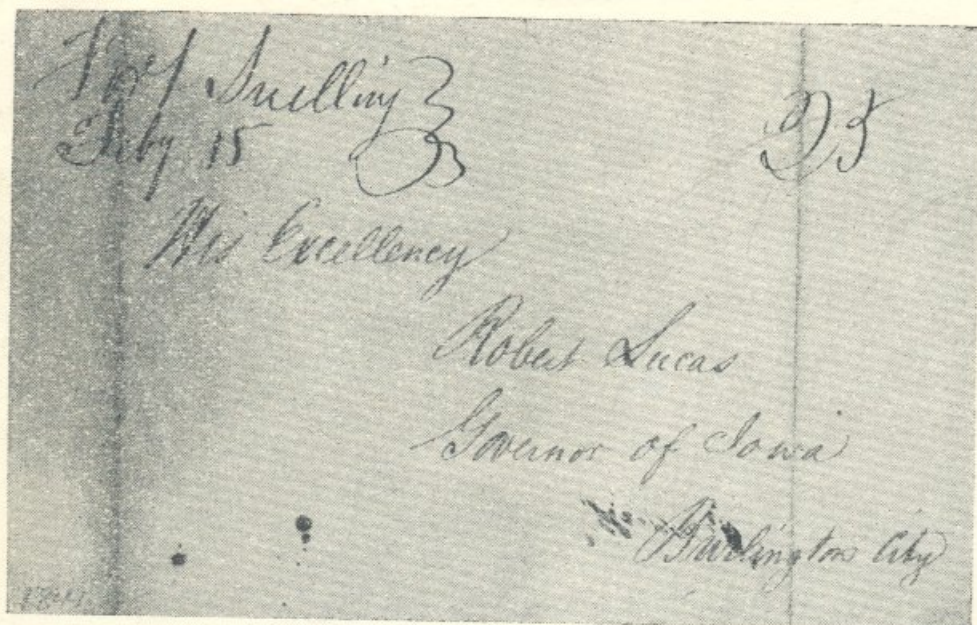 Fort Snelling
Feby 15
25
His Excellency
Robert Lucas
Governor of Iowa
Burlington City